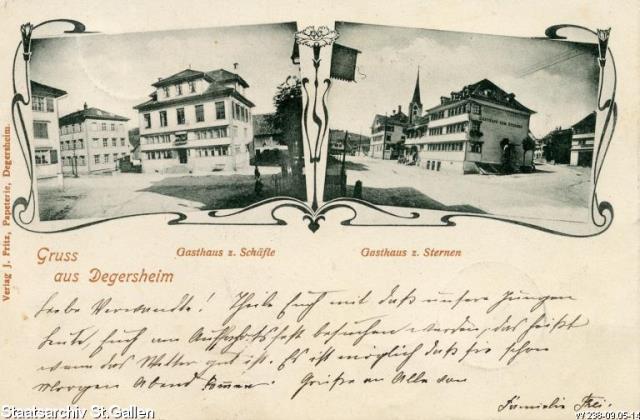 GASTHAUS ZUM STERNEN
Verlag J. Fritz, Papeterie, Degersheim.
Gasthaus z. Schäfle
Gasthaus z. Sternen
Gruss
aus Degersheim
Liebe Verwandte! Theile Euch mit daß unsere jungen
Leute, Euch am Auffahrtsfest besuchen werden, das heißt
wenn das Wetter gut ist. Es ist möglich daß sie schon
Morgen Abend kommen. Grüße an Alle von
Familie Frei.
Staatsarchiv St.Gallen
W 238-09.05-14